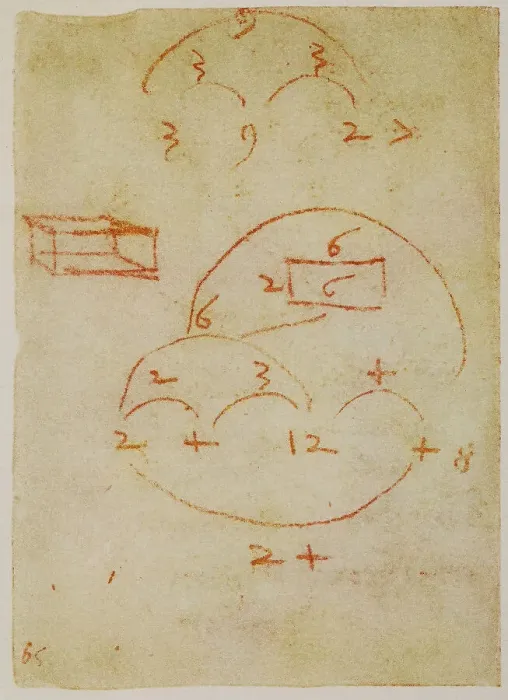 9
3 3
3 9 27
6
2 6
6
2 3 4
2 4 12 48
24
65